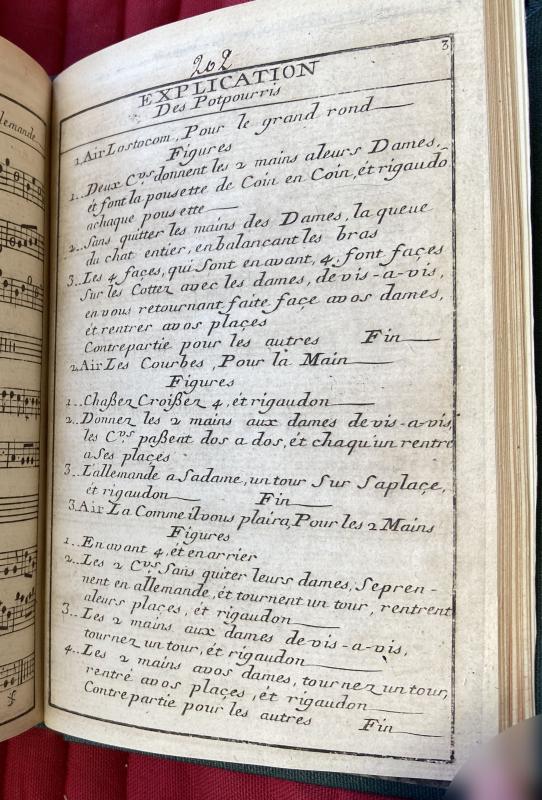 lemande
202
3
EXPLICATION
Des Potpourris
1. Air Lostocom, Pour le grand rond
Figures
1.. Deux C.vs donnent les 2 mains aleurs Dames,
ét font la pousette de Coin en Coin, ét rigaudō
achaque pousette
2.. Sans quitter les mains des Dames, la queue
du chat entier, en balancant les bras
3.. Les 4 faces, qui Sont en avant, 4, font façes
Sur les Cottez avec les dames, de vis-a-vis,
en vous retournant faite façe avos dames,
ét rentrer avos plaçes
Contrepartie pour les autres Fin
2. Air Les Courbes, Pour la Main
Figures
1.. Chaßez Croißez 4, ét rigaudon
2.. Donnez les 2 mains aux dames de vis-a-vis,
les C.vs paßent dos a dos, ét chaqu'un rentre
a Ses plaçes
3.. L'allemande a Sadame, un tour Sur Saplaçe,
ét rigaudon Fin
3. Air La Comme il vous plaira, Pour les 2 Mains
Figures
1.. En avant 4, ét en arrier
2.. Les 2 C.vs Sans quiter leurs dames, Sepren-
nent en allemande, ét tournent un tour, rentrent
aleurs plaçes, ét rigaudon
3.. Les 2 mains aux dames de vis-a-vis,
tournez un tour, ét rigaudon
4.. Les 2 mains avos dames, tournez un tour,
rentré avos plaçes, ét rigaudon
Contrepartie pour les autres Fin